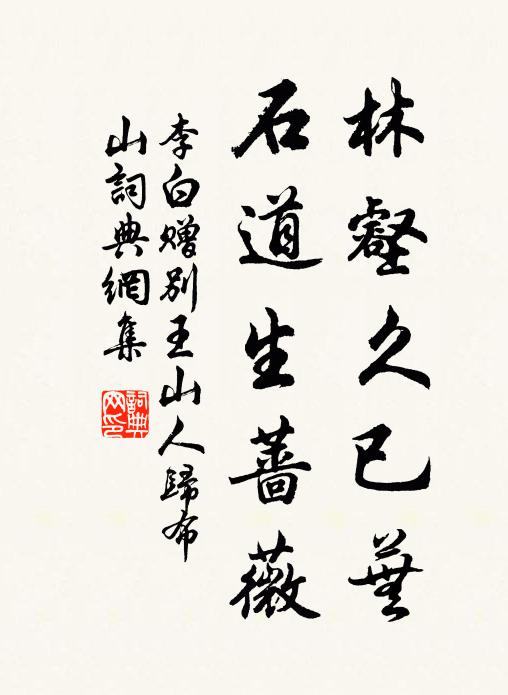 林壑久已蕪
石道生薔薇
李白赠别王山人歸布
山詞典網集
詞典
网印